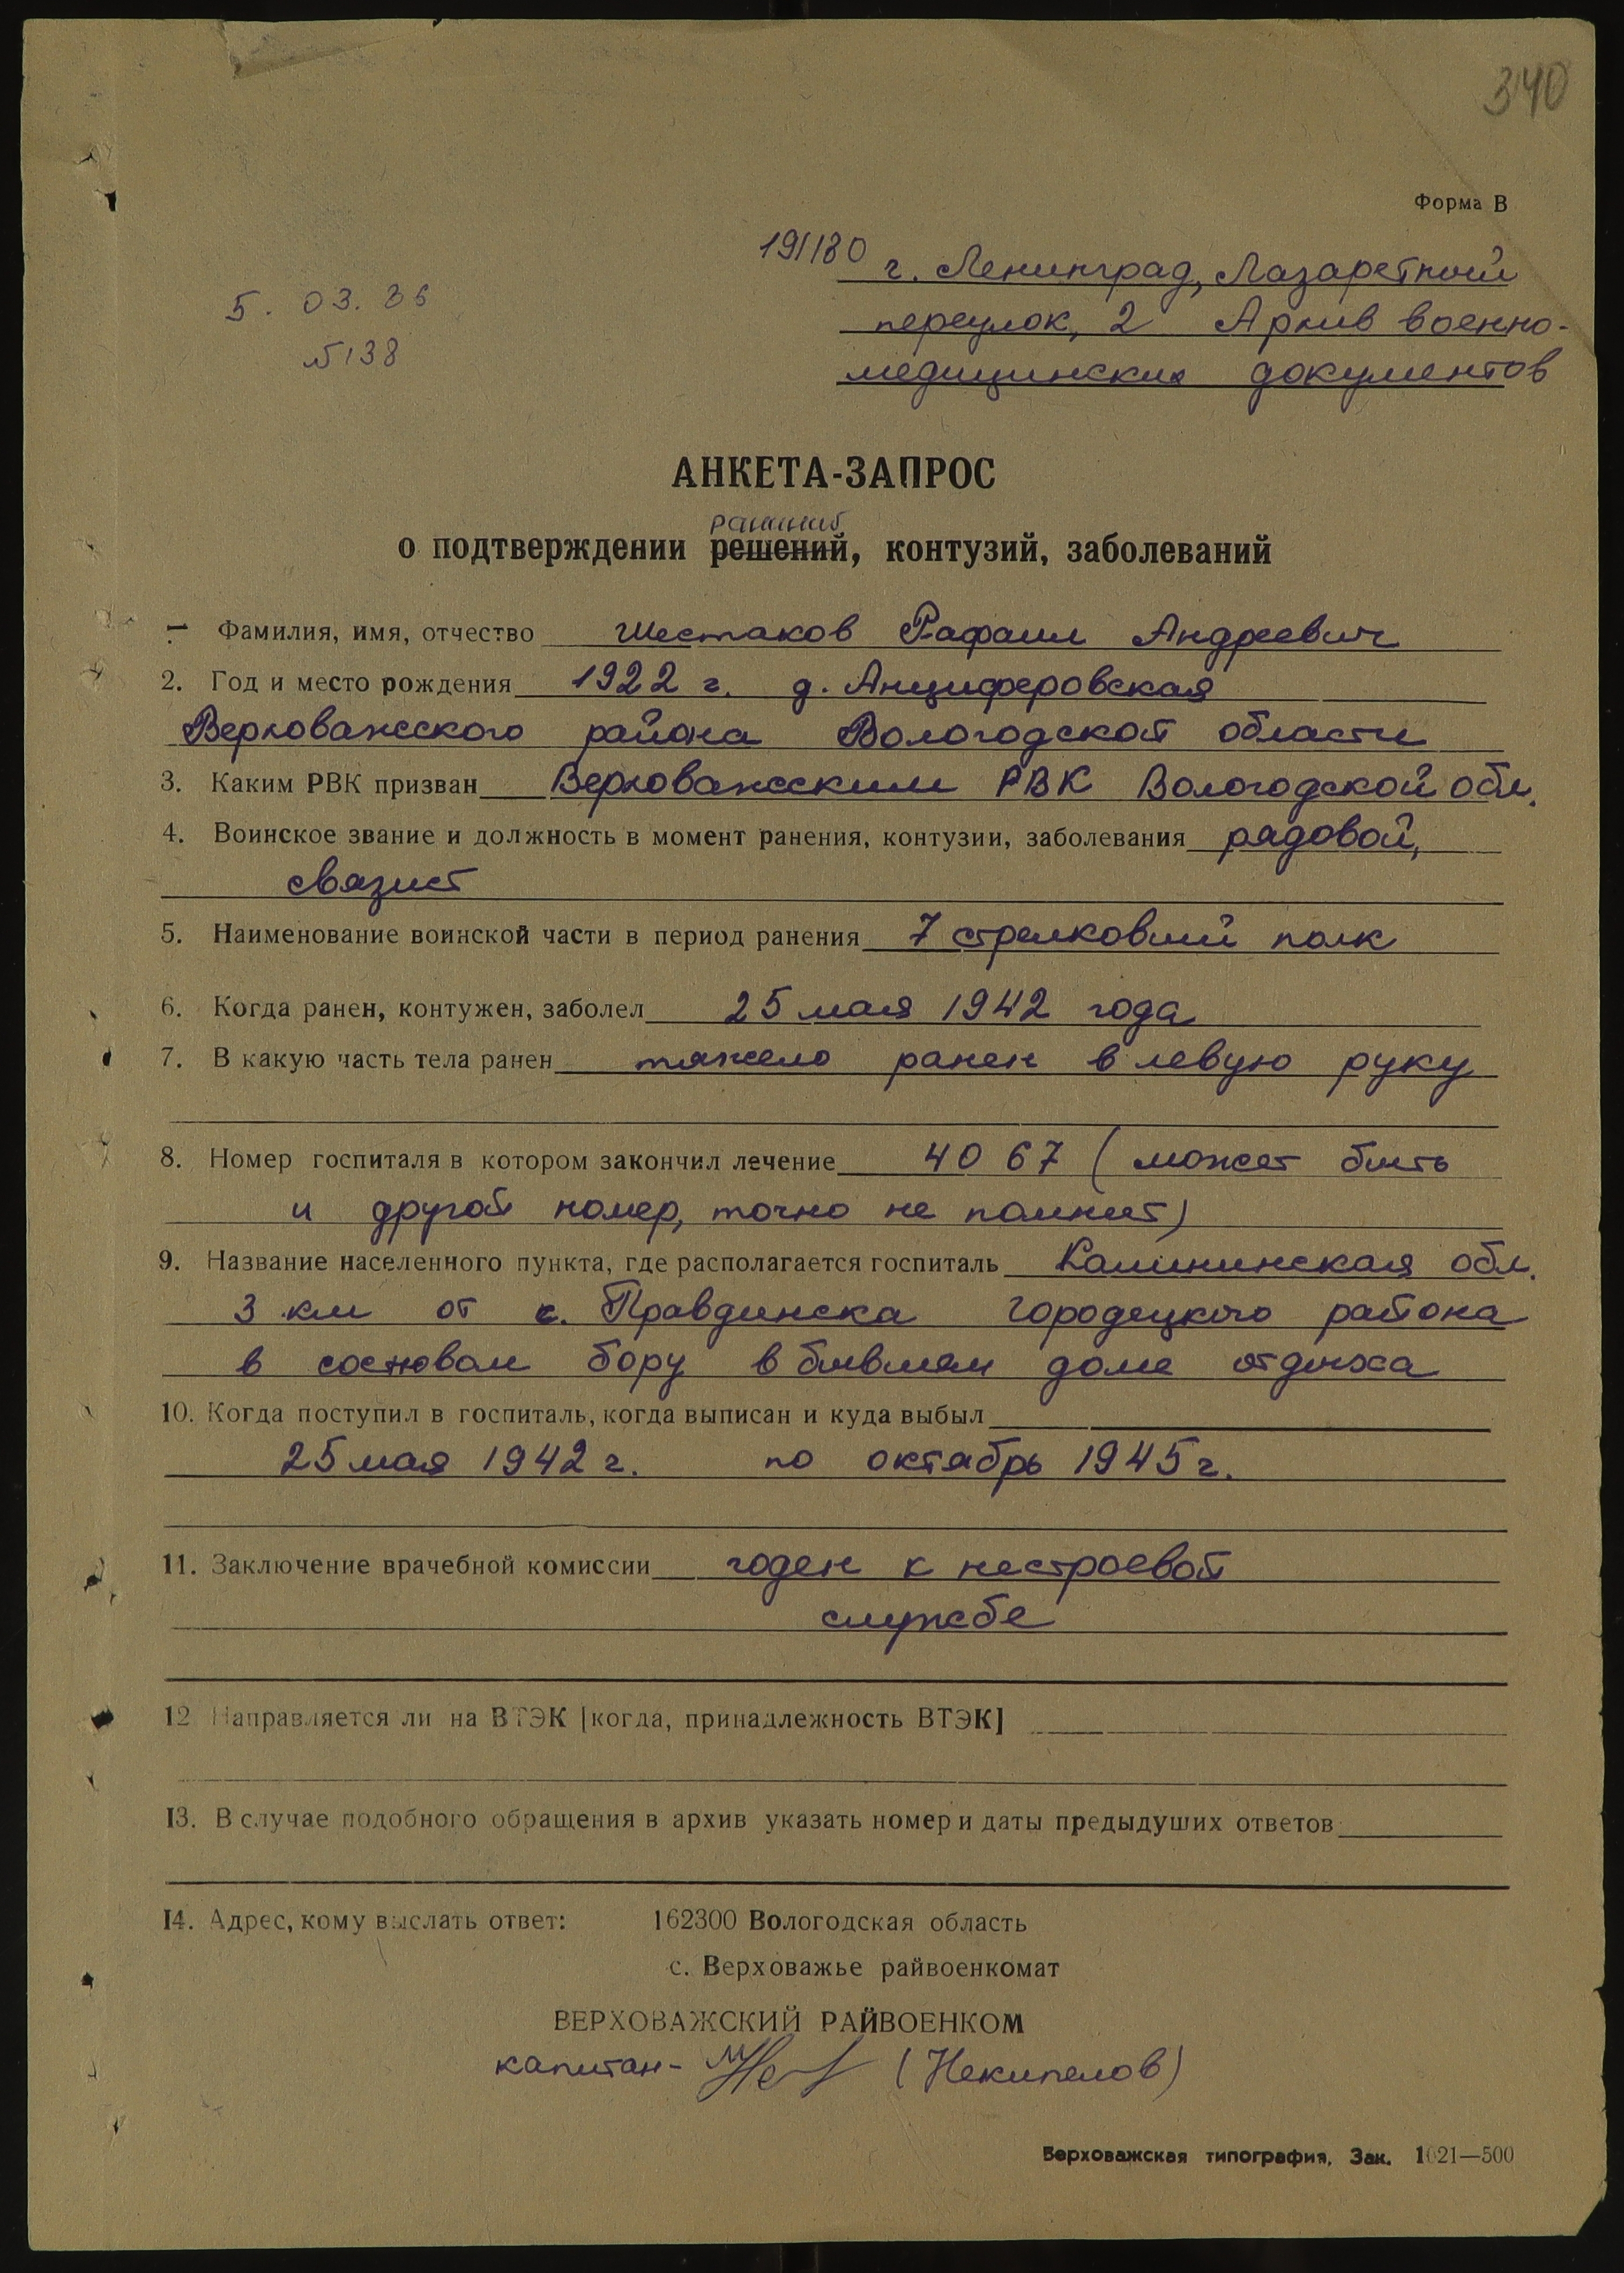 340
Форма В
191180 г. Ленинград, Лазаретный
переулок, 2 Архив военно-
медицинских документов
5. 03. 86
№138
АНКЕТА-ЗАПРОС
ранений
о подтверждении решений, контузий, заболеваний
Фамилия, имя, отчество Шестаков Рафаил Андреевич
2. Год и место рождения 1922 г. д. Анциферовская
Верховажского района Вологодской области
3. Каким РВК призван Верховажским РВК Вологодской обл.
4. Воинское звание и должность в момент ранения, контузии, заболевания рядовой,
связист
5. Наименование воинской части в период ранения 7 стрелковый полк
6. Когда ранен, контужен, заболел 25 мая 1942 года
7. В какую часть тела ранен тяжело ранен в левую руку
8. Номер госпиталя в котором закончил лечение 4067 (может быть
и другой номер, точно не помнит)
9. Название населенного пункта, где располагается госпиталь Калининская обл.
3 км от с. Правдинска Городецкого района
в сосновом бору в бывшем доме отдыха
10. Когда поступил в госпиталь, когда выписан и куда выбыл
25 мая 1942 г. по октябрь 1945 г.
11. Заключение врачебной комиссии годен к нестроевой
службе
12 Направляется ли на ВТЭК [когда, принадлежность ВТЭК]
13. В случае подобного обращения в архив указать номер и даты предыдуших ответов
14. Адрес, кому выслать ответ: 162300 Вологодская область
с. Верховажье райвоенкомат
ВЕРХОВАЖСКИЙ РАЙВОЕНКОМ
капитан- (Некипелов)
Верховажская типография, Зак. 1021—500